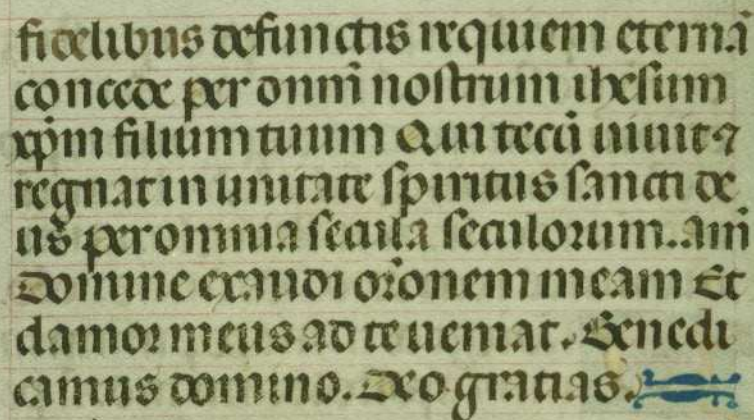 fidelibus defunctis requiem eternā
concede per dnm̄ nostrum ihesum
xp̄m filium tuum Qui tecū uiuit ⁊
regnat in unitate spiritus sancti de
us per omnia secula seculorum. am̄
Domine exaudi or̄onem meam Et
clamor meus ad te ueniat. Benedi
camus domino. Deo gratias.